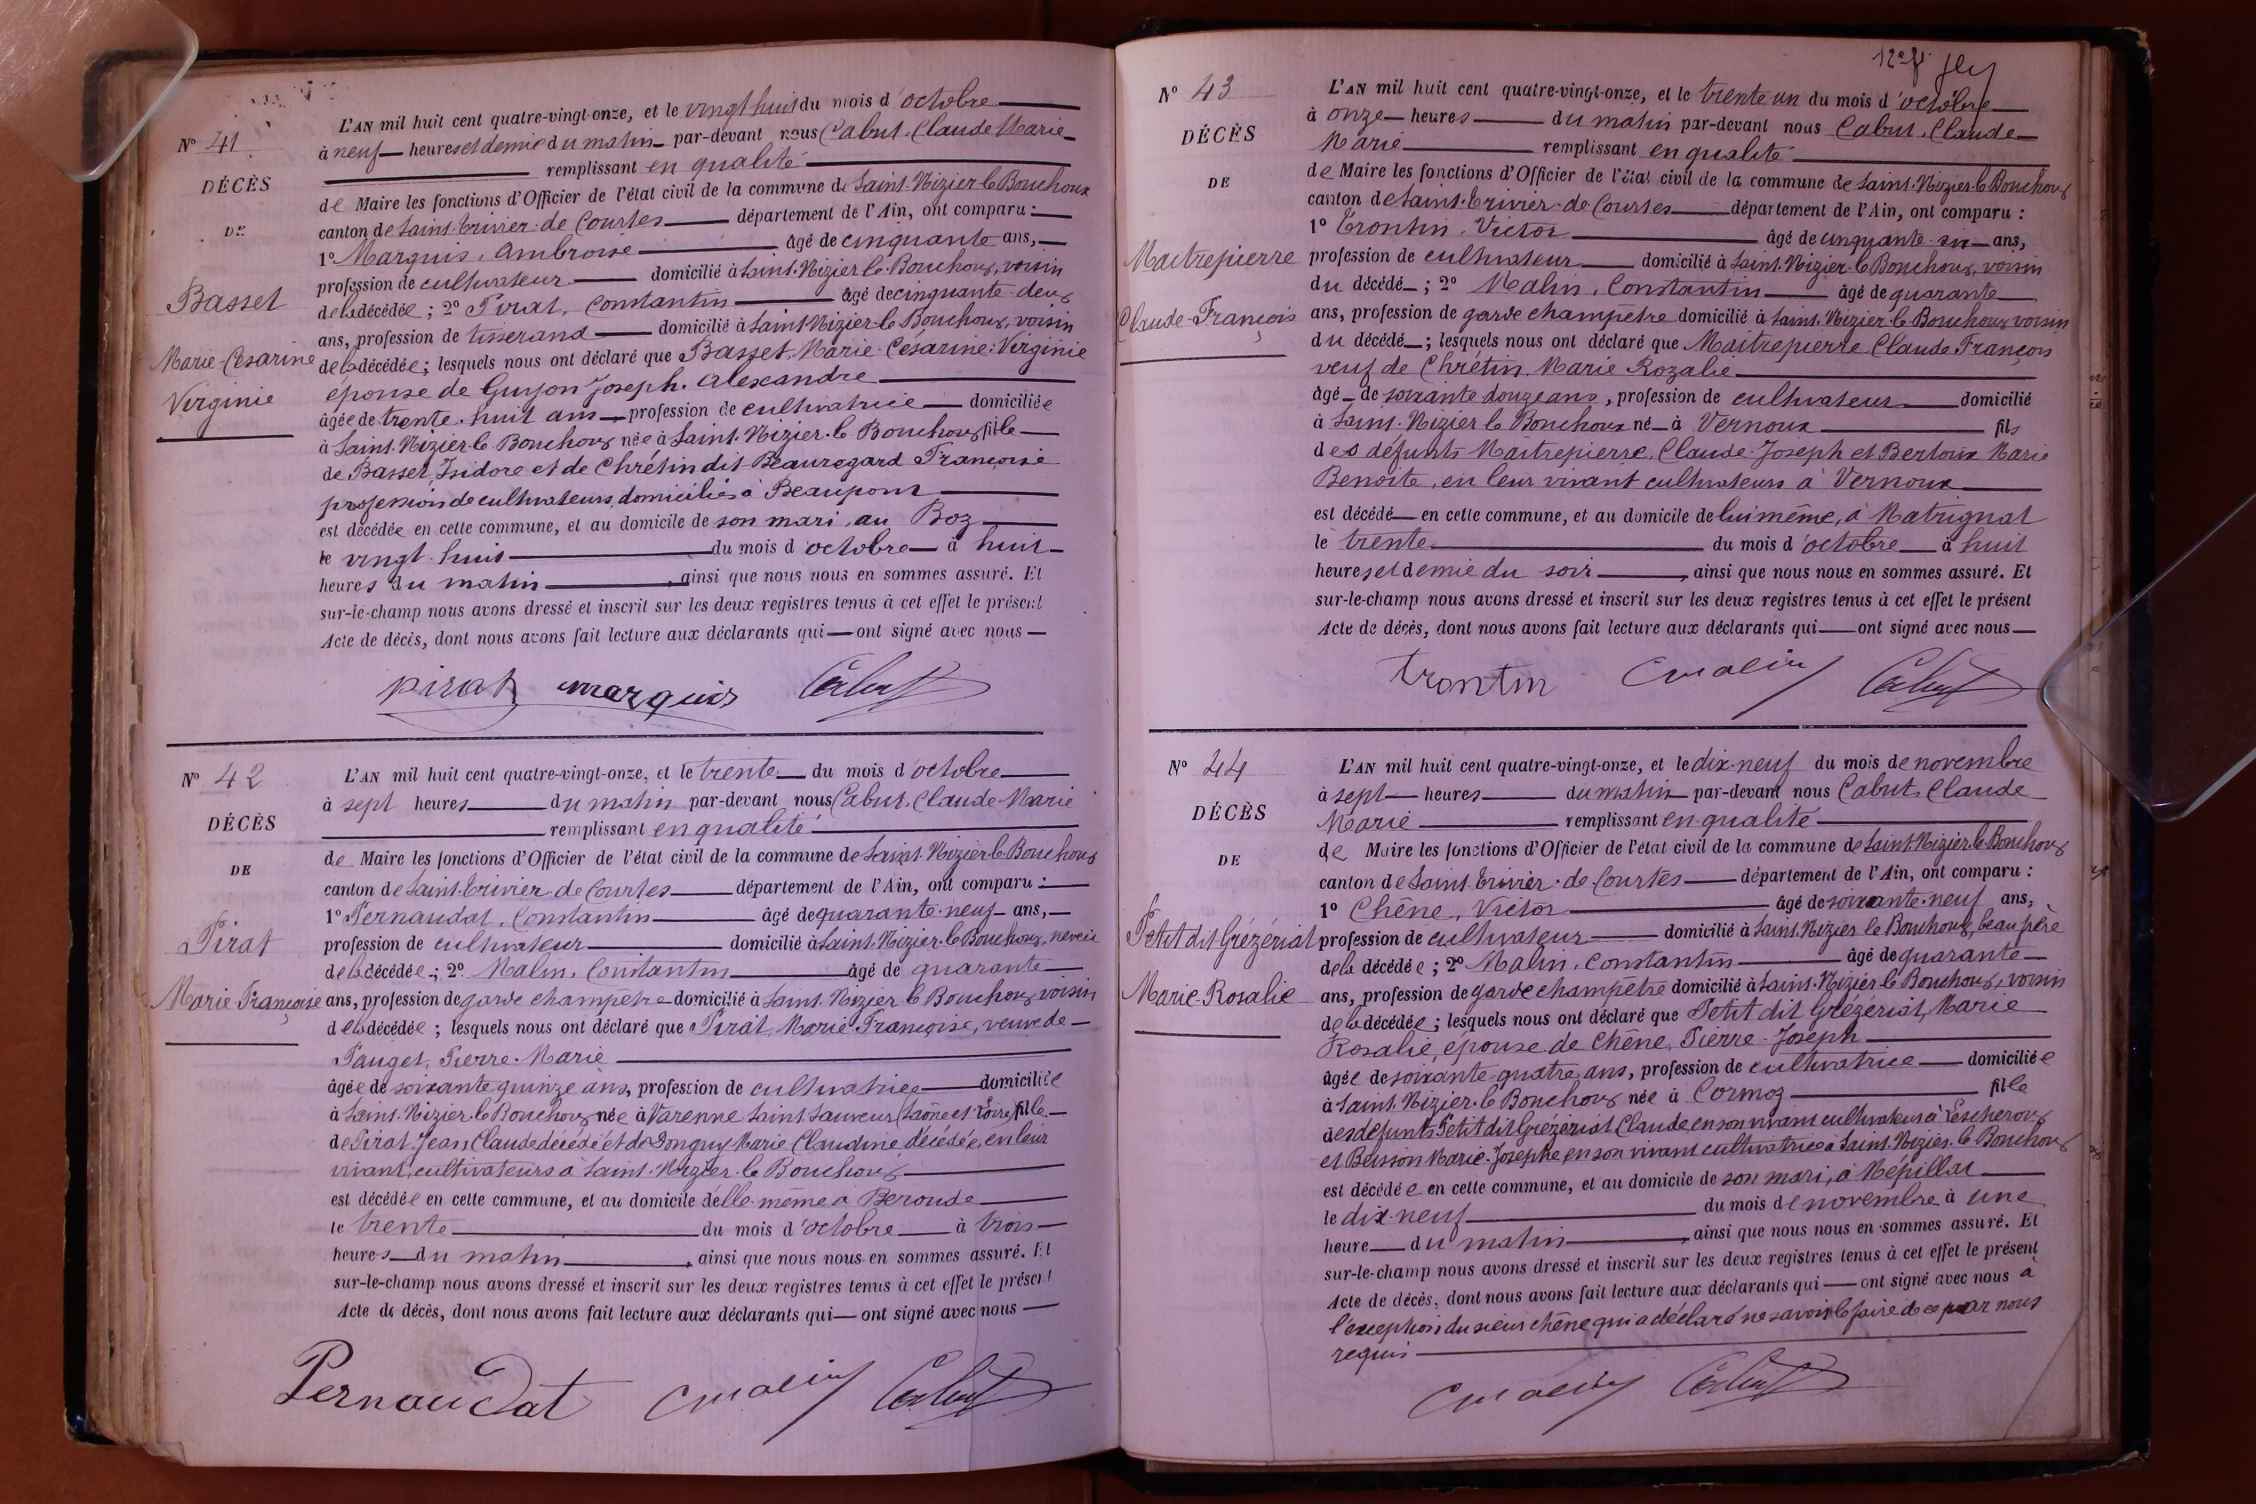 N° 41
DÉCÈS
DE
Basset
Marie-Césarine
Virginie
L'AN mil huit cent quatre-vingt-onze, et le vingt huit du mois d'octobre
à neuf heures et demie du matin par-devant nous Cabut, Claude Marie
remplissant en qualité
de Maire les fonctions d'Officier de l'état civil de la commune de Saint-Nizier-le-Bouchoux
canton de Saint-Trivier-de-Courtes département de l'Ain, ont comparu :
1° Marquis, Ambroise âgé de cinquante ans,
profession de cultivateur domicilié à Saint-Nizier-le-Bouchoux, voisin
de la décédée ; 2° Pirat, Constantin âgé de cinquante-deux
ans, profession de tisserand domicilié à Saint-Nizier-le-Bouchoux, voisin
de la décédée ; lesquels nous ont déclaré que Basset, Marie-Césarine-Virginie
épouse de Guyon Joseph-Alexandre
âgée de trente-huit ans profession de cultivatrice domiciliée
à Saint-Nizier-le-Bouchoux née à Saint-Nizier-le-Bouchoux fille
de Basset, Isidore et de Chrétin dit Beauregard Françoise
profession de cultivateurs, domiciliés à Beaupont
est décédée en cette commune, et au domicile de son mari, au Boz
le vingt-huit du mois d'octobre à huit
heures du matin, ainsi que nous nous en sommes assuré. Et
sur-le-champ nous avons dressé et inscrit sur les deux registres tenus à cet effet le présent
Acte de décès, dont nous avons fait lecture aux déclarants qui ont signé avec nous
pirat marquis Cabut
N° 42
DÉCÈS
DE
Pirat
Marie Françoise
L'AN mil huit cent quatre-vingt-onze, et le trente du mois d'octobre
à sept heures du matin par-devant nous Cabut, Claude-Marie
remplissant en qualité
de Maire les fonctions d'Officier de l'état civil de la commune de Saint-Nizier-le-Bouchoux
canton de Saint-Trivier-de-Courtes département de l'Ain, ont comparu :
1° Pernaudat, Constantin âgé de quarante-neuf ans,
profession de cultivateur domicilié à Saint-Nizier-le-Bouchoux, neveu
de la décédée ; 2° Malin, Constantin âgé de quarante
ans, profession de garde champêtre domicilié à Saint-Nizier-le-Bouchoux, voisin
de la décédée ; lesquels nous ont déclaré que Pirat, Marie Françoise, veuve de
Pauget, Pierre-Marie
âgée de soixante quinze ans, profession de cultivatrice domiciliée
à Saint-Nizier-le-Bouchoux née à Varenne Saint Sauveur (Saône et Loire) fille
de Pirat Jean Claude décédé et de Donguy Marie Claudine décédée, en leur
vivant, cultivateurs à Saint-Nizier-le-Bouchoux
est décédée en cette commune, et au domicile d'elle-même a Beroude
le trente du mois d'octobre à trois
heures du matin, ainsi que nous nous en sommes assuré. Et
sur-le-champ nous avons dressé et inscrit sur les deux registres tenus à cet effet le présent
Acte de décès, dont nous avons fait lecture aux déclarants qui ont signé avec nous
Pernaudat Cmalin Cabut
12e f
N° 43
DÉCÈS
DE
Maitrepierre
Claude-François
L'AN mil huit cent quatre-vingt-onze, et le trente un du mois d'octobre
à onze heures du matin par-devant nous Cabut, Claude
Marie remplissant en qualité
de Maire les fonctions d'Officier de l'état civil de la commune de Saint-Nizier-le-Bouchoux
canton de Saint-Trivier-de-Courtes département de l'Ain, ont comparu :
1° Trontin, Victor âgé de cinquante-six ans,
profession de cultivateur domicilié à Saint-Nizier-le-Bouchoux, voisin
du décédé ; 2° Malin, Constantin âgé de quarante
ans, profession de garde champêtre domicilié à Saint-Nizier-le-Bouchoux voisin
du décédé ; lesquels nous ont déclaré que Maitrepierre Claude François
veuf de Chrétin, Marie Rozalie
âgé de soixante douze ans, profession de cultivateur domicilié
à Saint-Nizier le Bouchoux né à Vernoux fils
des défunts Maitrepierre, Claude-Joseph et Bertoux Marie
Benoite, en leur vivant cultivateurs à Vernoux
est décédé en cette commune, et au domicile de lui même, à Matrignat
le trente du mois d'octobre à huit
heures et demie du soir, ainsi que nous nous en sommes assuré. Et
sur-le-champ nous avons dressé et inscrit sur les deux registres tenus à cet effet le présent
Acte de décès, dont nous avons fait lecture aux déclarants qui ont signé avec nous
trontin Cmalin Cabut
N° 44
DÉCÈS
DE
Petit dit Grézériat
Marie-Rosalie
L'AN mil huit cent quatre-vingt-onze, et le dix-neuf du mois de novembre
à sept heures du matin par-devant nous Cabut, Claude
Marie remplissant en qualité
de Maire les fonctions d'Officier de l'état civil de la commune de Saint-Nizier-le-Bouchoux
canton de Saint-Trivier-de-Courtes département de l'Ain, ont comparu :
1° Chêne, Victor âgé de soixante-neuf ans,
profession de cultivateur domicilié à Saint-Nizier le Bouchoux, beau père
de la décédée ; 2° Malin, Constantin âgé de quarante
ans, profession de garde champêtre domicilié à Saint-Nizier-le-Bouchoux, voisin
de la décédée ; lesquels nous ont déclaré que Petit dit Grézériat, Marie
Rosalie, épouse de Chêne, Pierre-Joseph
âgée de soixante-quatre ans, profession de cultivatrice domiciliée
à Saint-Nizier-le-Bouchoux née à Cormoz fille
des défunts Petit dit Grézériat Claude en son vivant cultivateur à Lescheroux
et Buisson Marie-Josephe en son vivant cultivatrice à Saint-Nizier-le-Bouchoux
est décédée en cette commune, et au domicile de son mari, à Mépillat
le dix-neuf du mois de novembre à une
heure du matin, ainsi que nous nous en sommes assuré. Et
sur-le-champ nous avons dressé et inscrit sur les deux registres tenus à cet effet le présent
Acte de décès, dont nous avons fait lecture aux déclarants qui ont signé avec nous à
l'exception du sieur chêne qui a déclaré ne savoir le faire de ce par nous
requis
Cmalin Cabut